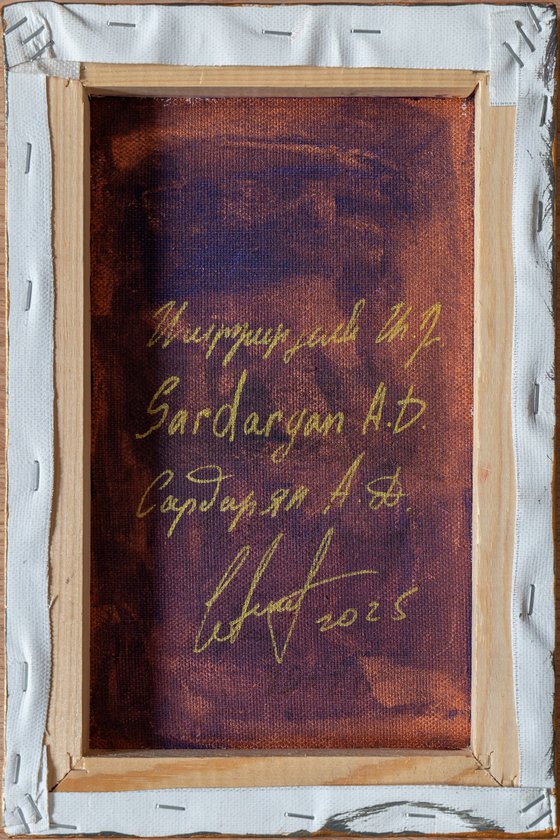 Սարդարյան Ա.Դ.
Sardaryan A.D.
Сардарян А.Д.
2025